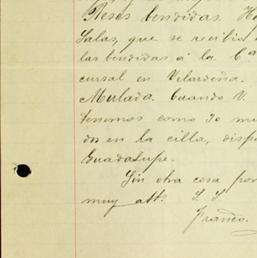 Reses bendidas. Ho
Salas, que se recibio d
las bendidas á la Ca
cursal en Velardeña.
Mulada. Cuando V.
tenemos como 30 mu
dn en la cilla, disp
Guadalupe.
Sin otra cosa por
muy att: S S
Franco.